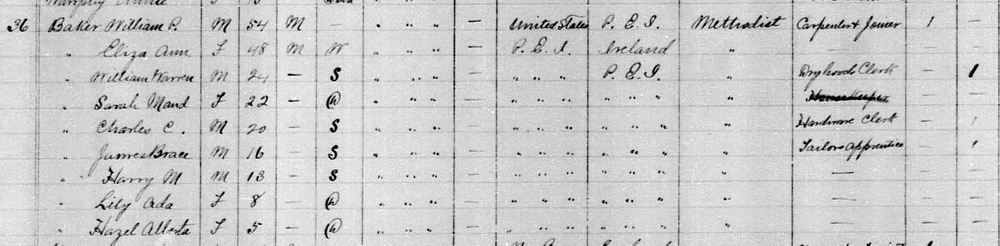 36 Baker William P. M 54 M " " " — United States P. E. I. Methodist Carpenter & Joiner 1 —
" Eliza Ann F 48 M W " " " — P. E. I. Ireland " — —
" William Warren M 24 — S " " " — " " " P. E. I. " Dry Goods Clerk — 1
" Sarah Maud F 22 — D " " " — " " " " " " " House Keeper —
" Charles C. M 20 — S " " " — " " " " " " " Hardware Clerk — 1
" James Brace M 16 — S " " " — " " " " " " " Tailors apprentice — 1
" Harry M M 13 — S " " " — " " " " " " " — —
" Lily Ada F 8 — D " " " — " " " " " " " — —
" Hazel Alberta F 5 — D " " " — " " " " " " " — —